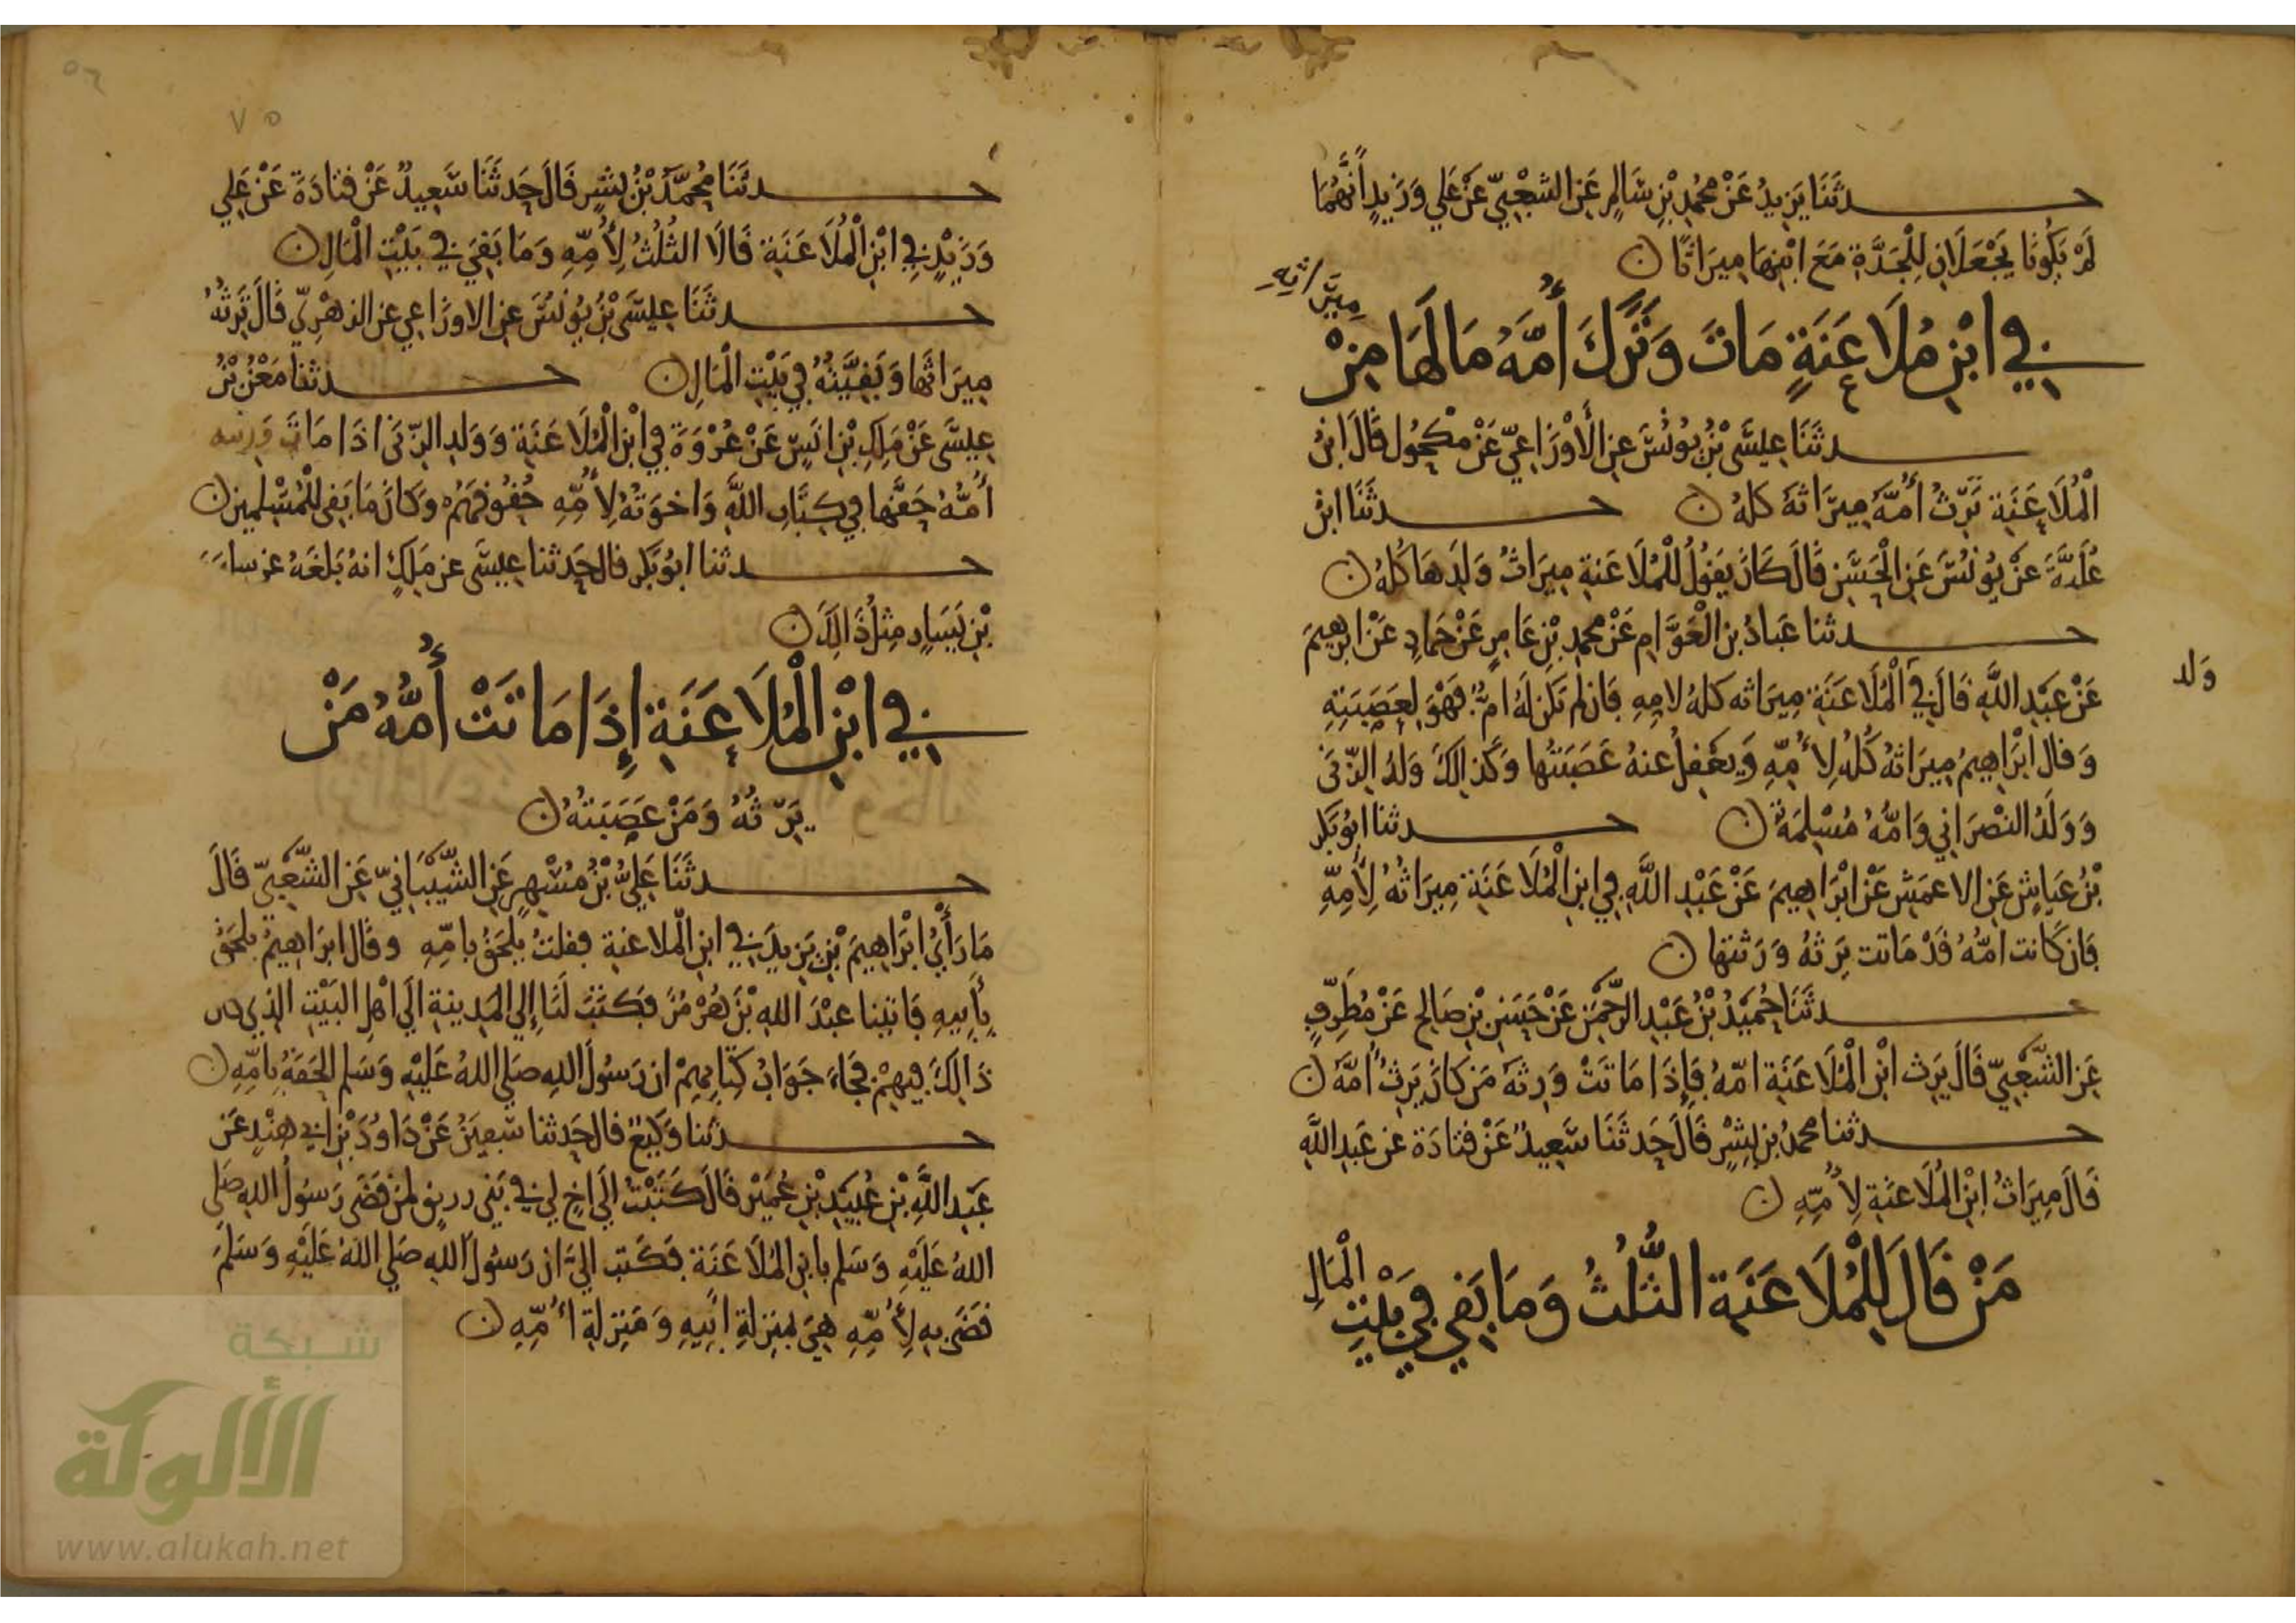 حدثنا يزيد عن محمد بن سالم عن الشعبي عن علي وزيد أنهما
لم يكونا يجعلان للجدة مع ابنها ميراثا
في ابن ملاعنة مات وترك أمه ما لها من
ميراثه
حدثنا عيسى بن يونس عن الأوزاعي عن مكحول قال ابن
الملاعنة ترث أمه ميراثه كله حدثنا ابن
علية عن يونس عن الحسن قال كان يقول للملاعنة ميراث ولدها كله
حدثنا عباد بن العوام عن محمد بن عامر عن حماد عن ابرهيم
عن عبد الله قال في الملاعنة ميراثه كله لامه فان لم تكن له ام فهو لعصبته
ولد
وقال ابراهيم ميراثه كله لأمه ويعقل عنه عصبتها وكذالك ولد الزنى
وولد النصراني وامه مسلمة حدثنا ابو بكر
بن عياش عن الاعمش عن ابراهيم عن عبد الله في ابن الملاعنة ميراثه لأمه
فان كانت امه قد ماتت يرثه ورثتها
حدثنا حميد بن عبد الرحمن عن حسن بن صالح عن مطرف
عن الشعبي قال يرث ابن الملاعنة امه فإذا ماتت ورثه من كان يرث أمه
حدثنا محمد بن بشر قال حدثنا سعيد عن قتادة عن عبد الله
قال ميراث ابن الملاعنة لأمه
من قال للملاعنة الثلث وما بقي في بيت
المال
٥٦
٧٥
حدثنا محمد بن بشر قال حدثنا سعيد عن قتادة عن علي
وزيد في ابن الملاعنة قالا الثلث لأمه وما بقي في بيت المال
حدثنا عيسى بن يونس عن الاوزاعي عن الزهري قال ترثه
ميراثها وبقيته في بيت المال حدثنا معن بن
عيسى عن ملك بن انس عن عروة في ابن الملاعنة وولد الزنى اذا مات ورثته
أمه حقها في كتاب الله واخوته لأمه حقوقهم وكان ما بقى للمسلمين
حدثنا ابو بكر قال حدثنا عيسى عن ملك انه بلغه عن
بن يسار مثل ذالك
في ابن الملاعنة إذا ماتت أمه من
يرثه ومن عصبته
حدثنا علي بن مسهر عن الشيباني عن الشعبي قال
ما رأي ابراهيم بن يزيد في ابن الملاعنة فقلت يلحق بامه وقال ابراهيم يلحق
بأبيه فاتينا عبد الله بن هرمز فكتب لنا إلي المدينة الي اهل البيت الذي كان
ذالك فيهم فجاء جواب كتابهم ان رسول الله صلي الله عليه وسلم الحقه بامه
حدثنا وكيع قال حدثنا سفين عن داود بن ابي هند عن
عبد الله بن عبيد بن عمير قال كتبت الي اخ لي في بني زريق لمن قضى رسول الله صلى
الله عليه وسلم بابن الملاعنة فكتب الي ان رسول الله صلي الله عليه وسلم
قضى به لأمه هي بمنزلة ابيه ومنزلة أمه
شبكة
الألوكة
www.alukah.net